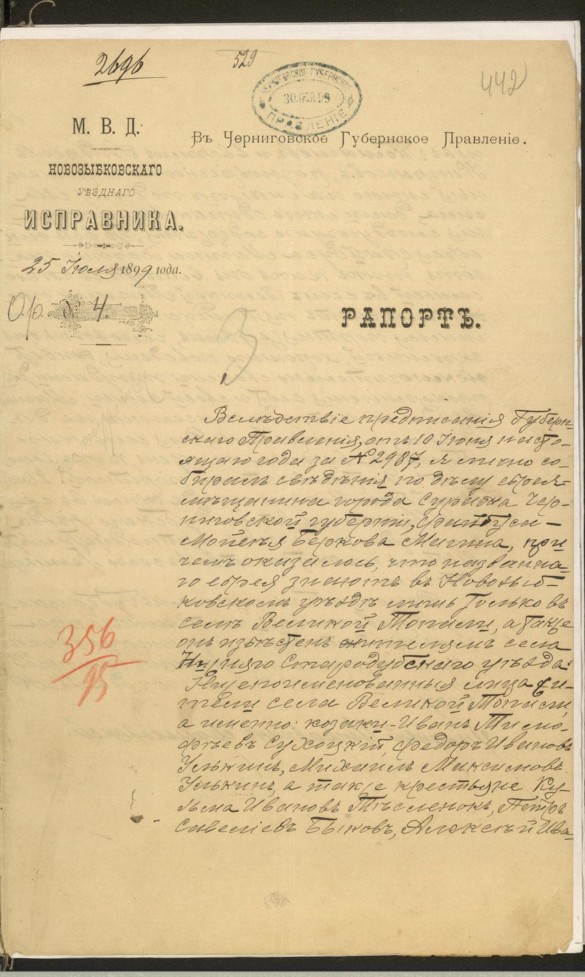 2696
529
442
ЧЕРНИГОВСКОЕ ГУБЕРНСКОЕ
30.ІЮЛ.99
ПРАВЛЕНІЕ
М. В. Д.
НОВОЗЫБКОВСКАГО
УѢЗДНАГО
ИСПРАВНИКА.
25 Іюля 1899 года.
№ 4.
Въ Черниговское Губернское Правленіе.
РАПОРТЪ.
3
Вслѣдствіе предписанія Губерн-
скаго Правленія, отъ 10 Іюня насто-
ящаго года за № 2987, я лично со-
биралъ свѣдѣнія по дѣлу еврея-
мѣщанина города Суража Чер-
ниговской губерніи,
Беркова при
чемъ оказалось, что названна-
го еврея знаютъ въ Новозыб-
ковскомъ уѣздѣ лишь только въ
селѣ Великой Топали, а также
онъ извѣстенъ жителямъ села
Стародубскаго уѣзда.
Нижепоименованныя лица жи-
тели села Великой Топали,
а именно: козаки - Иванъ Тимо-
фѣевъ Сухоцкій, Федоръ Ивановъ
Улькинъ, Михаилъ Максимовъ
Улькинъ, а также крестьяне Ку-
зьма Ивановъ Петръ
Савеліевъ Быковъ, Алексѣй Ива-
356
95